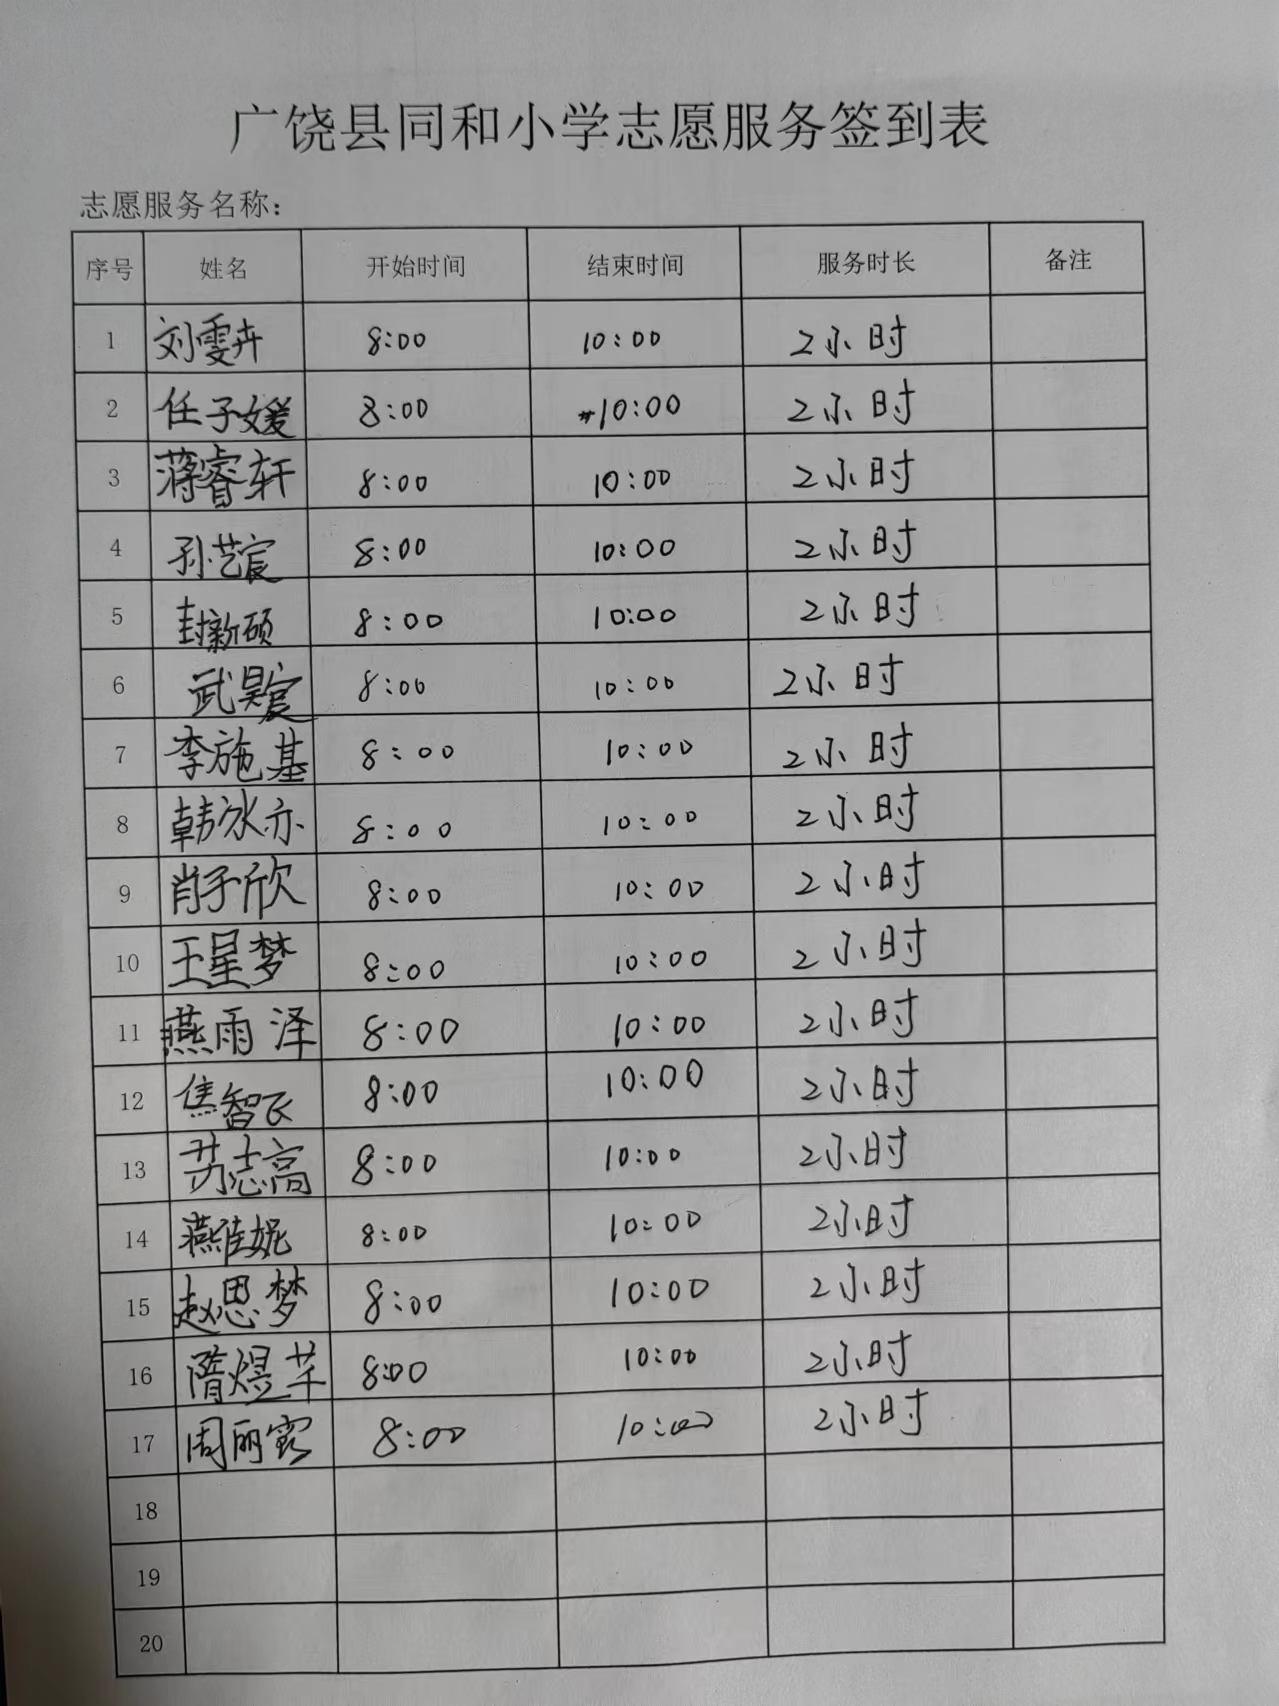 广饶县同和小学志愿服务签到表
志愿服务名称：
序号 姓名 开始时间 结束时间 服务时长 备注
1 刘雯卉 8:00 10:00 2小时
2 任子媛 8:00 10:00 2小时
3 蒋睿轩 8:00 10:00 2小时
4 孙艺宸 8:00 10:00 2小时
5 封新硕 8:00 10:00 2小时
6 武昊宸 8:00 10:00 2小时
7 李施基 8:00 10:00 2小时
8 韩冰亦 8:00 10:00 2小时
9 肖子欣 8:00 10:00 2小时
10 王星梦 8:00 10:00 2小时
11 燕雨泽 8:00 10:00 2小时
12 焦智飞 8:00 10:00 2小时
13 苏志高 8:00 10:00 2小时
14 燕佳妮 8:00 10:00 2小时
15 赵思梦 8:00 10:00 2小时
16 隋煜芊 8:00 10:00 2小时
17 周丽 8:00 10:00 2小时
18
19
20